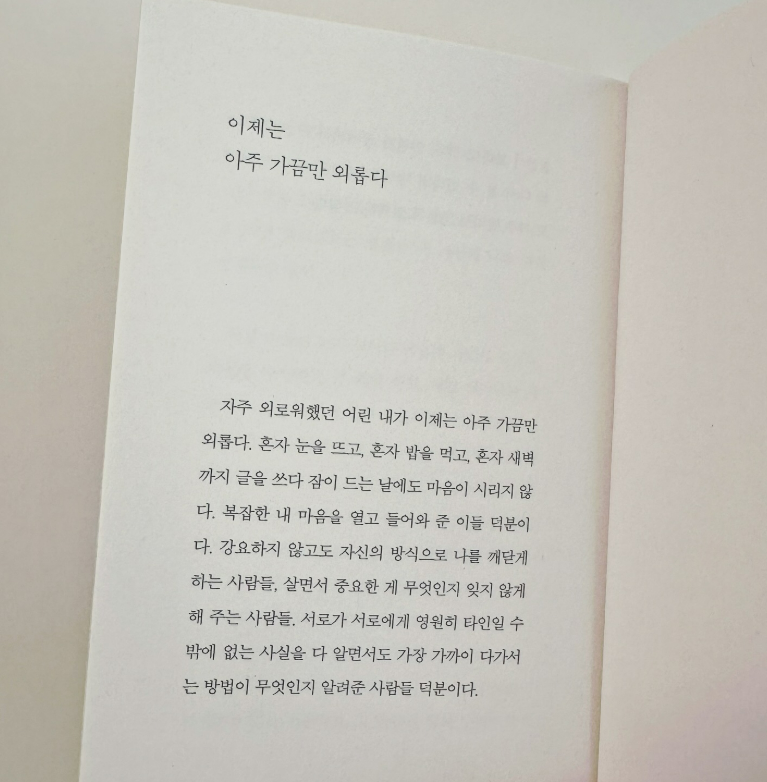 이제는
아주 가끔만 외롭다
자주 외로워했던 어린 내가 이제는 아주 가끔만
외롭다. 혼자 눈을 뜨고, 혼자 밥을 먹고, 혼자 새벽
까지 글을 쓰다 잠이 드는 날에도 마음이 시리지 않
다. 복잡한 내 마음을 열고 들어와 준 이들 덕분이
다. 강요하지 않고도 자신의 방식으로 나를 깨닫게
하는 사람들, 살면서 중요한 게 무엇인지 잊지 않게
해 주는 사람들. 서로가 서로에게 영원히 타인일 수
밖에 없는 사실을 다 알면서도 가장 가까이 다가서
는 방법이 무엇인지 알려준 사람들 덕분이다.